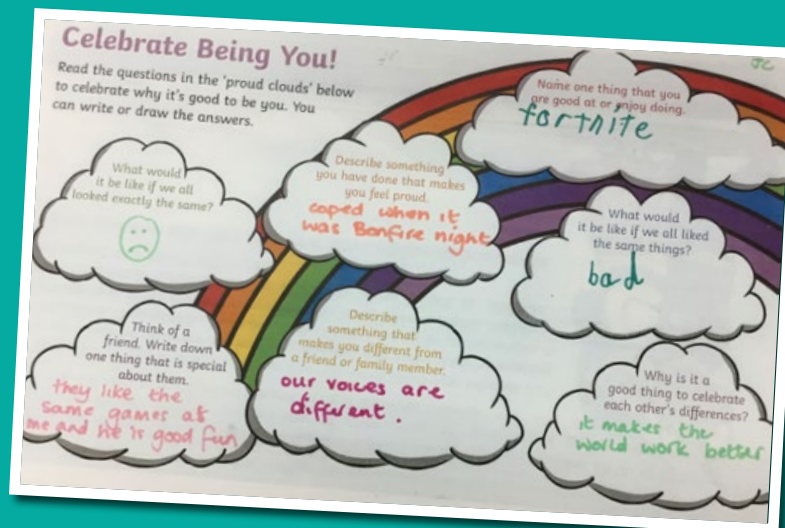 Celebrate Being You!
JC
Read the questions in the 'proud clouds' below
to celebrate why it's good to be you. You
can write or draw the answers.
Name one thing that you
are good at or enjoy doing.
fortnite
What would
it be like if we all
looked exactly the same?
Describe something
you have done that makes
you feel proud.
coped when it
was Bonfire night
What would
it be like if we all liked
the same things?
bad
Think of a
friend. Write down
one thing that is special
about them.
they like the
same games as
me and he is good fun
Describe
something that
makes you different from
a friend or family member.
our voices are
different.
Why is it a
good thing to celebrate
each other's differences?
it makes the
world work better